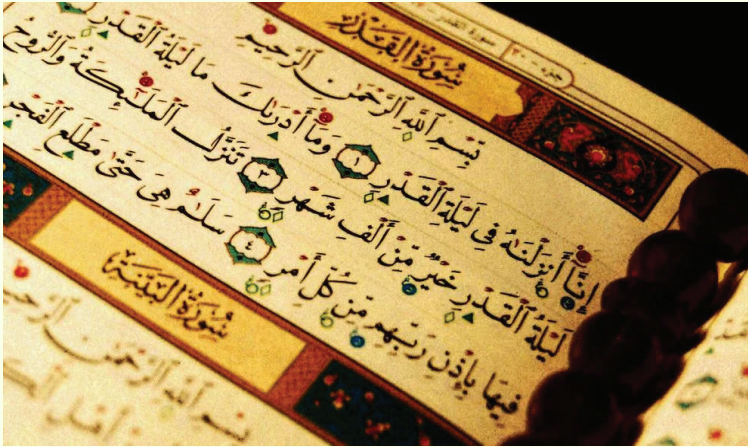 جزء - ٣٠ سورة القدر
سُورَةُ القَدْرِ
بِسْمِ ٱللَّهِ ٱلرَّحْمَٰنِ ٱلرَّحِيمِ
إِنَّآ أَنزَلْنَٰهُ فِى لَيْلَةِ ٱلْقَدْرِ ١ وَمَآ أَدْرَىٰكَ مَا لَيْلَةُ ٱلْقَدْرِ
لَيْلَةُ ٱلْقَدْرِ خَيْرٌ مِّنْ أَلْفِ شَهْرٍ ٣ تَنَزَّلُ ٱلْمَلَٰٓئِكَةُ وَٱلرُّوحُ
فِيهَا بِإِذْنِ رَبِّهِم مِّن كُلِّ أَمْرٍ ٤ سَلَٰمٌ هِىَ حَتَّىٰ مَطْلَعِ ٱلْفَجْرِ
سُورَةُ البَيِّنَةِ
بِسْمِ ٱللَّهِ ٱلرَّحْمَٰنِ ٱلرَّحِيمِ